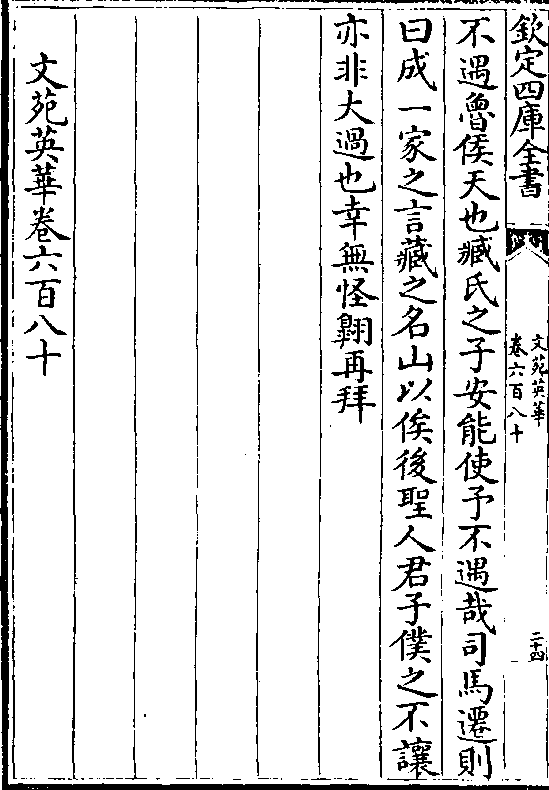 欽定四庫全書
文苑英華
卷六百八十
二十四
不遇魯侯天也臧氏之子安能使予不遇哉司馬遷則
曰成一家之言藏之名山以俟後聖人君子僕之不讓
亦非大過也幸無怪翺再拜
文苑英華卷六百八十